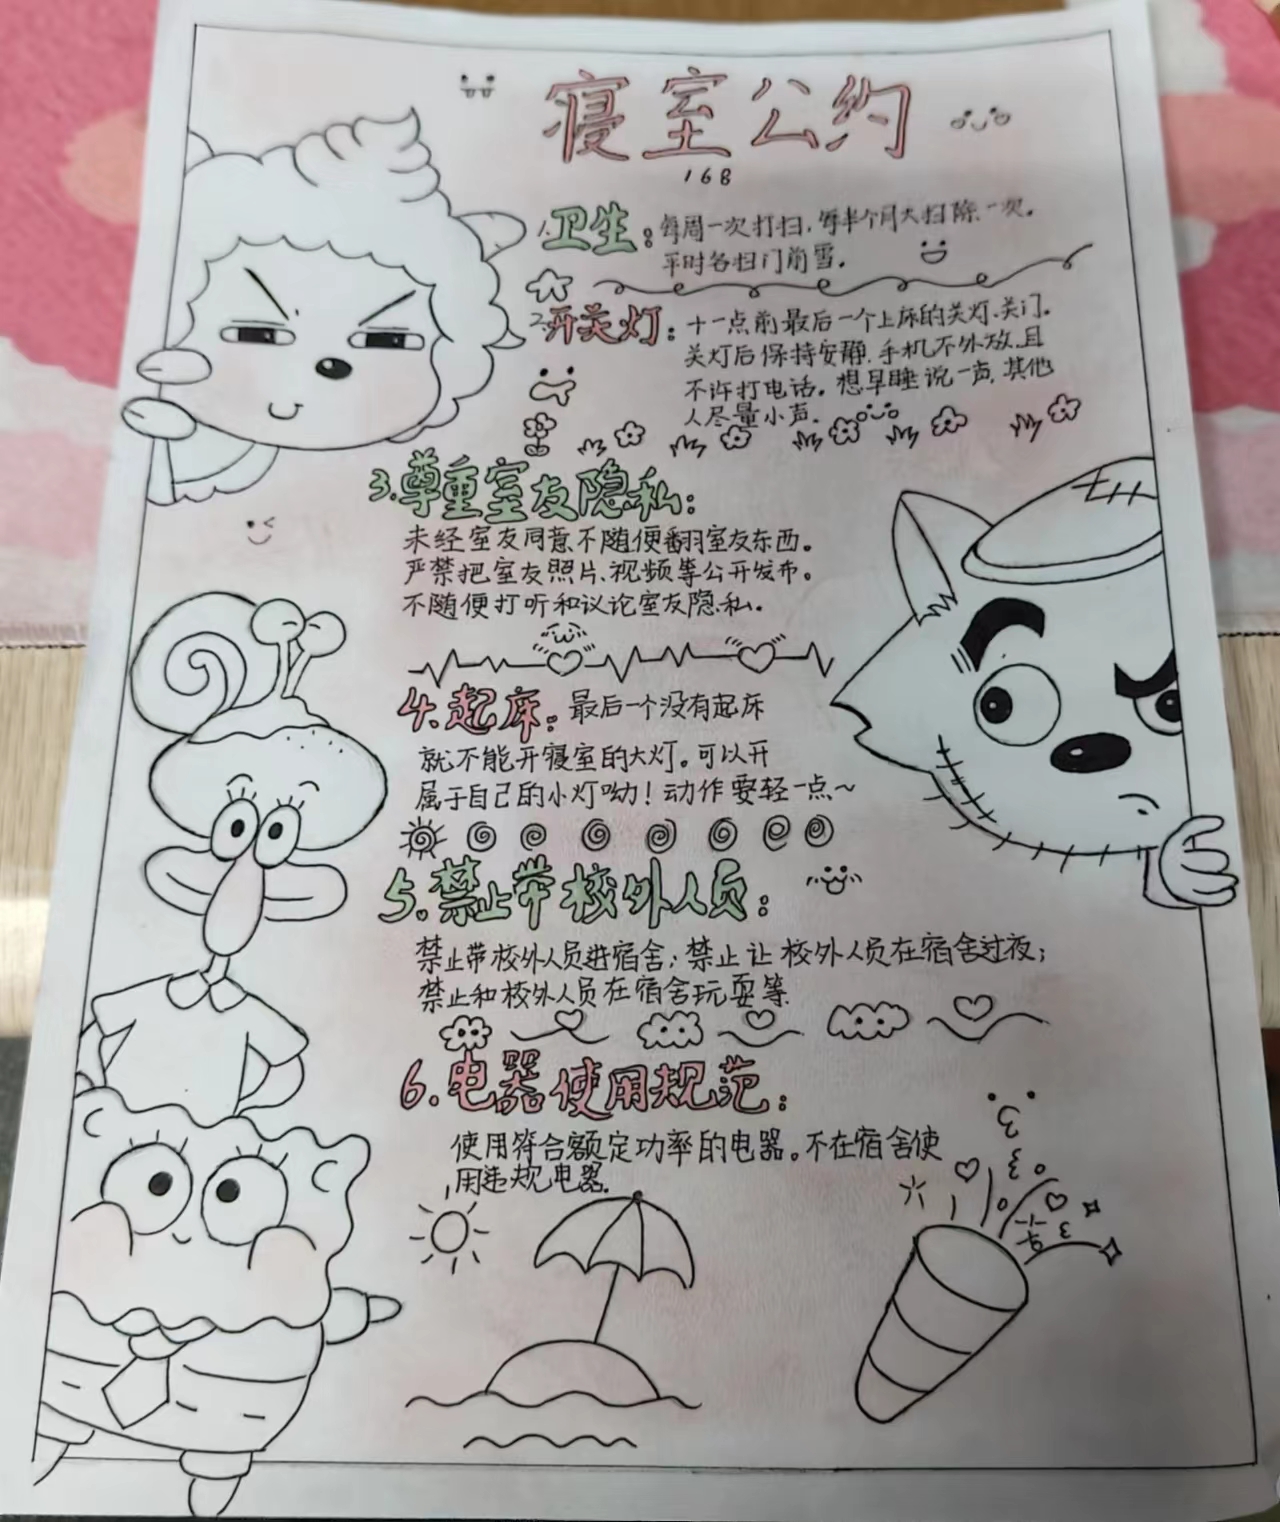 寝室公约
168
1.卫生：每周一次打扫，每半个月大扫除一次。
平时各扫门前雪。
2.开关灯：十一点前最后一个上床的关灯、关门。
关灯后保持安静，手机不外放，且
不许打电话。想早睡说一声，其他
人尽量小声。
3.尊重室友隐私：
未经室友同意不随便翻室友东西。
严禁把室友照片、视频等公开发布。
不随便打听和议论室友隐私。
4.起床：最后一个没有起床
就不能开寝室的大灯。可以开
属于自己的小灯呦！动作要轻一点～
5.禁止带校外人员：
禁止带校外人员进宿舍；禁止让校外人员在宿舍过夜；
禁止和校外人员在宿舍玩耍等.
6.电器使用规范：
使用符合额定功率的电器。不在宿舍使
用违规电器.